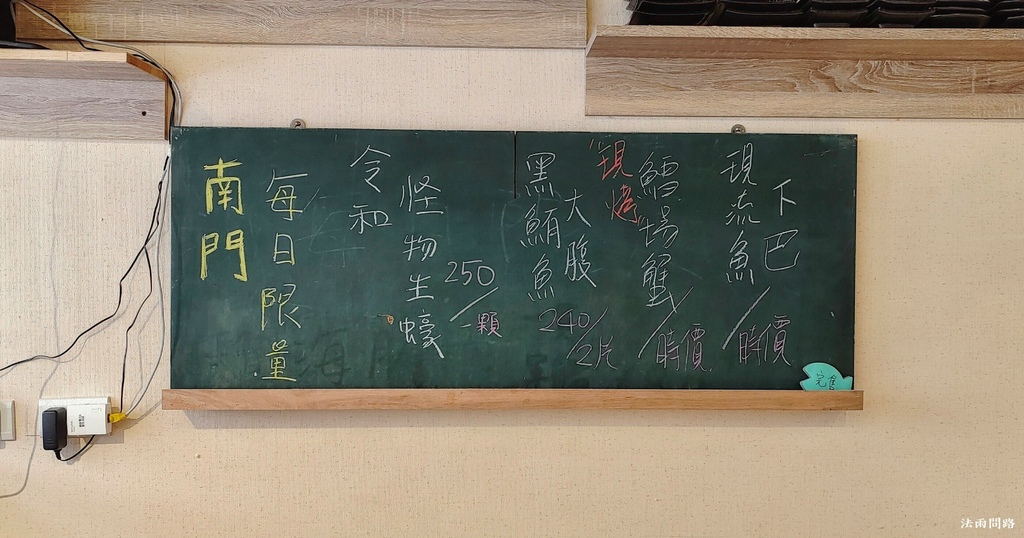 南門
每日限量
令和
怪物生蠔
250/一顆
黑鮪魚
大腹
240/2片
現烤
鱈場蟹/時價
現流魚/時價
下巴
完售
法雨問路